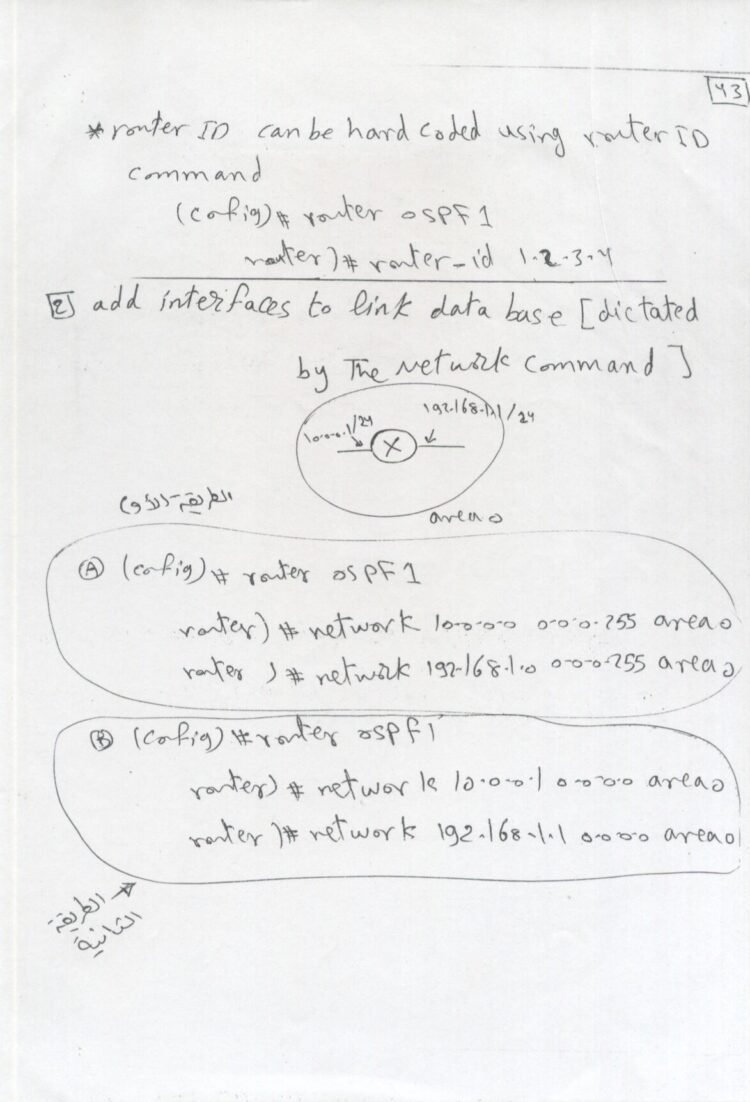 43
* router ID can be hard coded using router ID
command
(Config)# router OSPF 1
router)# router-id 1.2.3.4
2 add interfaces to link data base [dictated
by The Network Command]
10.0.0.1/24
192.168.1.1/24
X
area 0
الطريقة الاولى
A (config)# router OSPF 1
router)# network 10.0.0.0 0.0.0.255 area 0
router)# network 192.168.1.0 0.0.0.255 area 0
B (Config)# router OSPF 1
router)# network 10.0.0.1 0.0.0.0 area 0
router)# network 192.168.1.1 0.0.0.0 area 0
الطريقة
الثانية